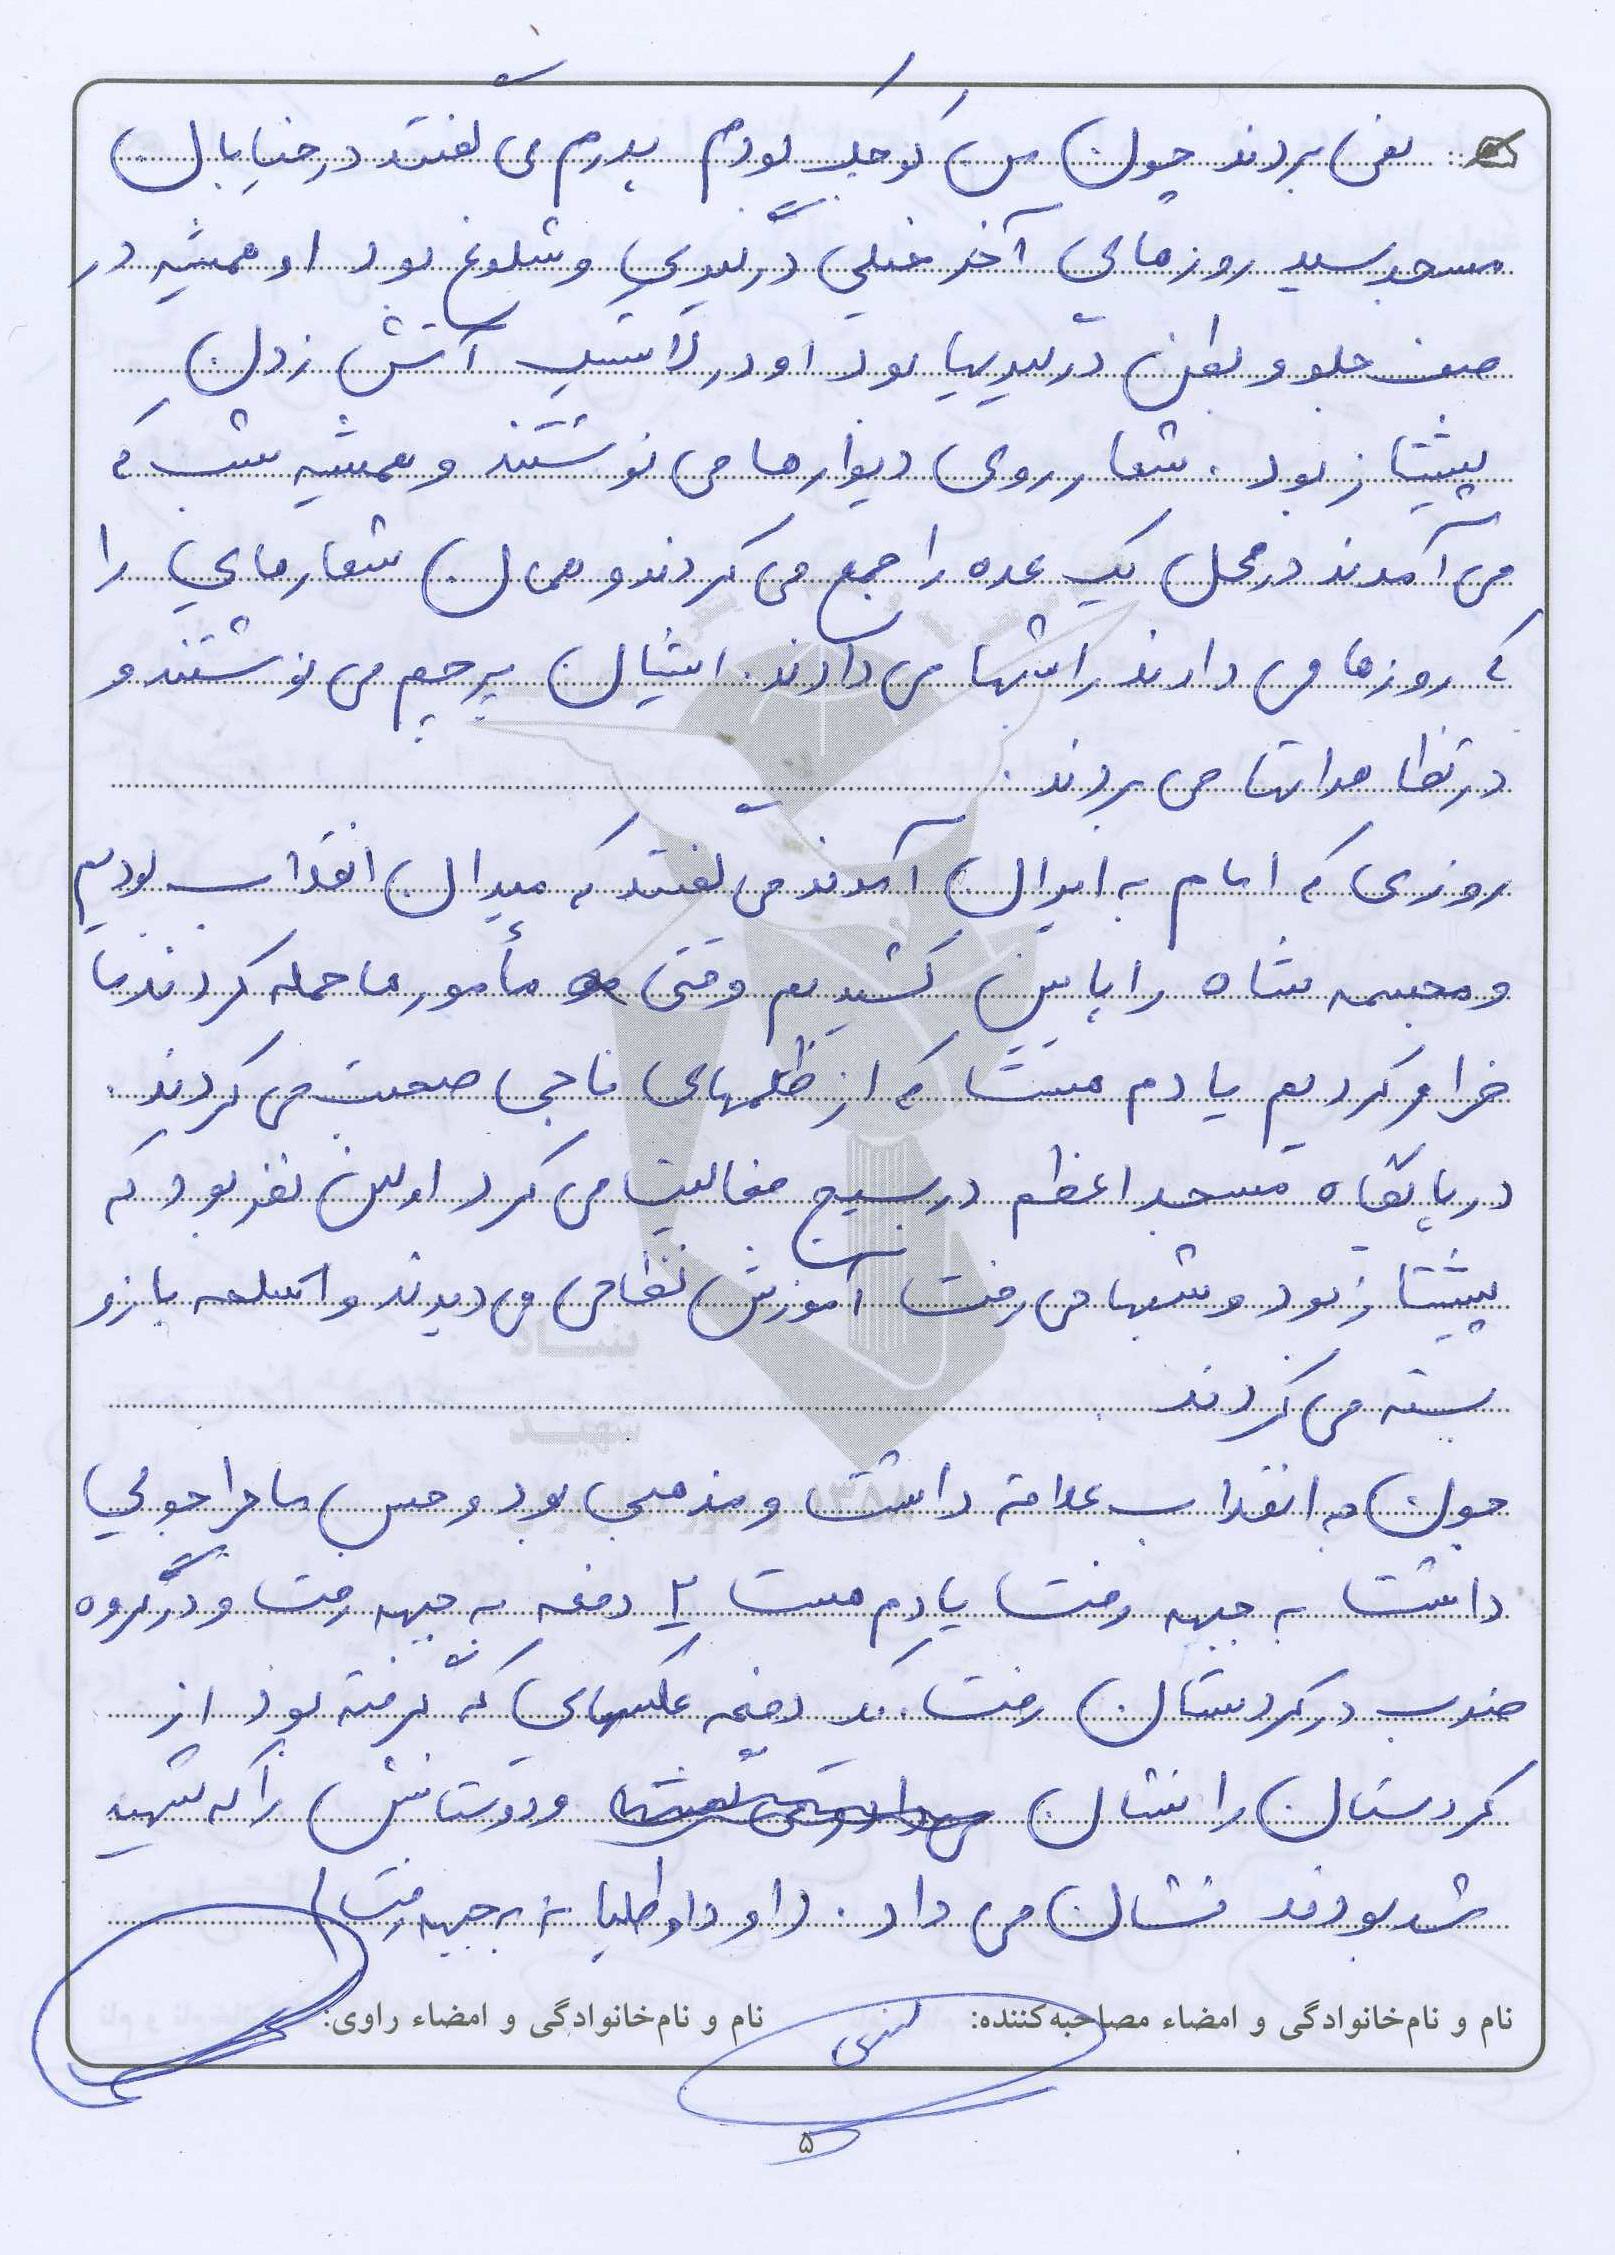 نمی بردند چون من کوچک بودم پدرم می گفتند در خیابان
مسجد سید روزهای آخر خیلی درگیری و شلوغ بود او همیشه در
صف جلو و بطن درگیریها بود او در لاستیک آتش زدن
پیشتاز بود. شعار روی دیوارها می نوشتند و همیشه شب که
می آمدند در محل یک عده را جمع می کردند و همان شعارهایی را
که روزها می دادند را شبها می دادند. ایشان پرچم می نوشتند و
در تظاهراتها می بردند.
روزی که امام به ایران آمدند می گفتند که میدان انقلاب بودیم
و مجسمه شاه را پایین کشیدیم وقتی مأمورها حمله کردند ما
فرار کردیم یادم هست که از ظلمهای ناجی صحبت می کردند.
در پایگاه مسجد اعظم در بسیج فعالیت می کرد اولین نفر بود که
پیشتاز بود و شبها می رفت آموزش نظامی می دیدند و اسلحه باز و
بسته می کردند.
چون به انقلاب علاقه داشت و مذهبی بود و حس ماجراجویی
داشت به جبهه رفت یادم هست ۲ دفعه به جبهه رفت و در گروه
ضربت در کردستان رفت. یک دفعه عکسهای که گرفته بود از
کردستان را نشان و دوستانش را که شهید
شده بودند نشان می داد. داوطلبانه به جبهه رفت
نام و نام‌خانوادگی و امضاء مصاحبه‌کننده:
نام و نام‌خانوادگی و امضاء راوی:
۵